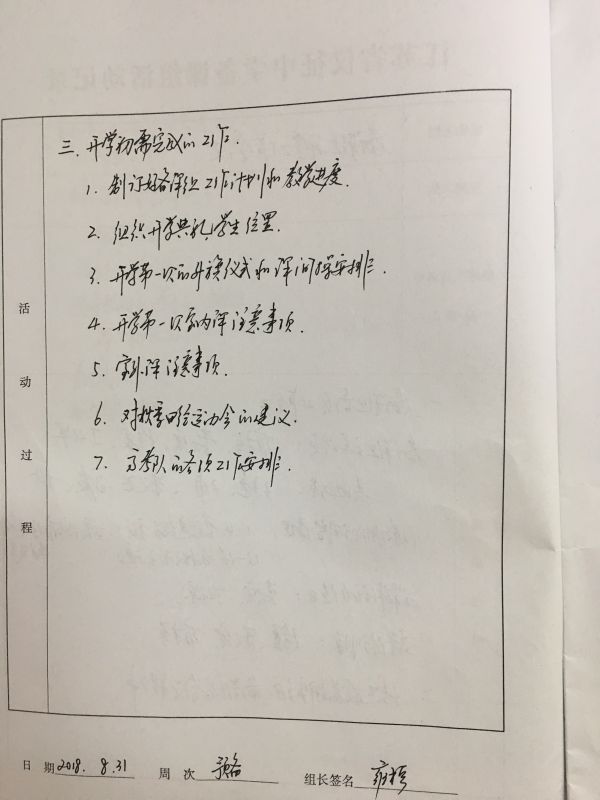 三、开学初需完成的工作.
1. 制订好备课组工作计划和教学进度.
2. 组织开学典礼,学生位置.
3. 开学第一次的升旗仪式和课间操安排.
4. 开学第一次室内课注意事项.
5. 室外课注意事项.
6. 对秋季田径运动会的建议.
7. 方案队的各项工作安排.
活
动
过
程
日 期 2018. 8. 31 周 次 预备 组长签名